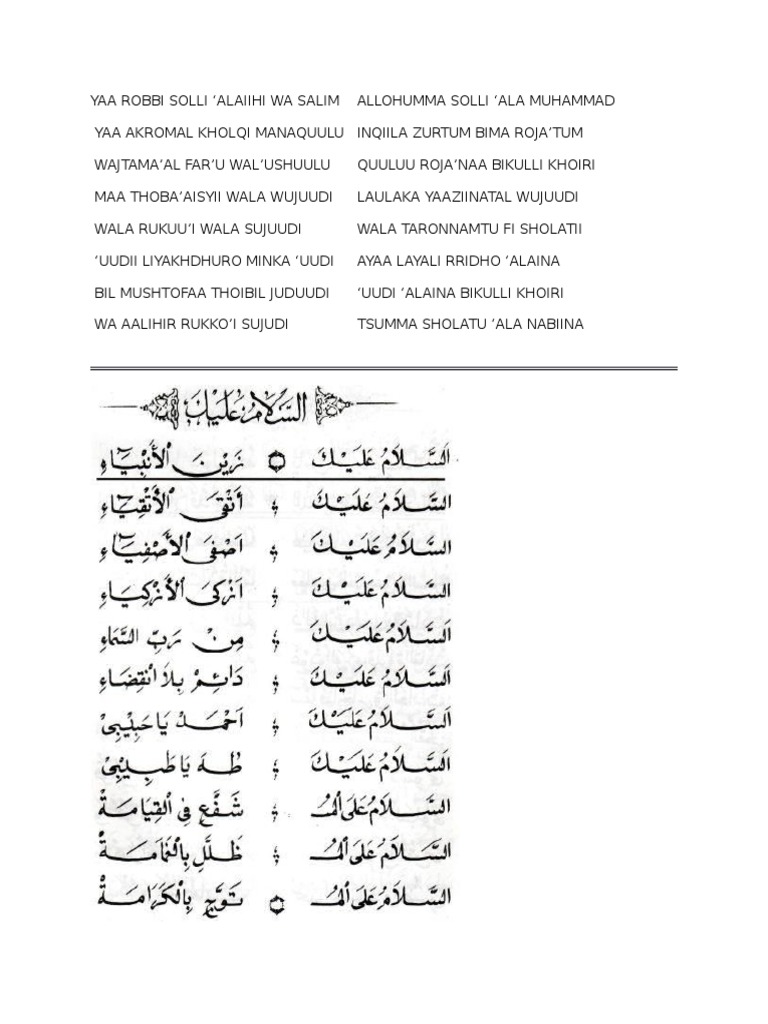 YAA ROBBI SOLLI ‘ALAIIHI WA SALIM ALLOHUMMA SOLLI ‘ALA MUHAMMAD
YAA AKROMAL KHOLQI MANAQUULU INQIILA ZURTUM BIMA ROJA’TUM
WAJTAMA’AL FAR’U WAL’USHUULU QUULUU ROJA’NAA BIKULLI KHOIRI
MAA THOBA’AISYII WALA WUJUUDI LAULAKA YAAZIINATAL WUJUUDI
WALA RUKUU’I WALA SUJUUDI WALA TARONNAMTU FI SHOLATII
‘UUDII LIYAKHDHURO MINKA ‘UUDI AYAA LAYALI RRIDHO ‘ALAINA
BIL MUSHTOFAA THOIBIL JUDUUDI ‘UUDI ‘ALAINA BIKULLI KHOIRI
WA AALIHIR RUKKO’I SUJUDI TSUMMA SHOLATU ‘ALA NABIINA
السَّلَامُ عَلَيْكَ
اَلسَّلَامُ عَلَيْكَ زَيْنَ الْأَنْبِيَاءِ
اَلسَّلَامُ عَلَيْكَ أَتْقَى الْأَتْقِيَاءِ
اَلسَّلَامُ عَلَيْكَ اَصْفَى الْأَصْفِيَاءِ
اَلسَّلَامُ عَلَيْكَ اَزْكَى الْأَزْكِيَاءِ
اَلسَّلَامُ عَلَيْكَ مِنْ رَبِّ السَّمَاءِ
اَلسَّلَامُ عَلَيْكَ دَائِمْ بِلَا انْقِضَاءِ
اَلسَّلَامُ عَلَيْكَ اَحْمَدُ يَا حَبِيْبِيْ
اَلسَّلَامُ عَلَيْكَ طٰهَ يَا طَبِيْبِيْ
اَلسَّلَامُ عَلَى الْمُـ شَفَّعِ فِي الْقِيَامَةْ
اَلسَّلَامُ عَلَى الْمُـ ظَلَّلِ بِالْغَمَامَةْ
اَلسَّلَامُ عَلَى الْمُـ تَوَّجِ بِالْكَرَامَةْ